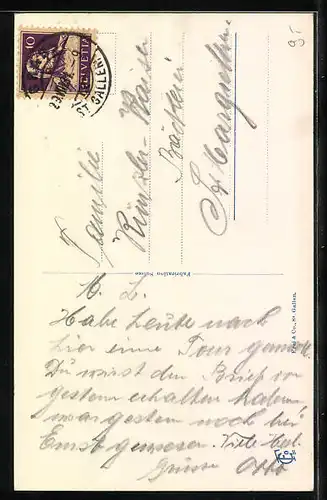 10
HELVETIA
ST. GALLEN
95
Familie
Künzler-Kaiser
Bäckerei
St. Margrethen
Fabrication Suisse
& Co., St. Gallen.
M. L.
Habe heute nach
hier eine Tour gemacht.
Du wirst den Brief vor
gestern erhalten haben
war gestern noch bei
Ernst gewesen. Viele herzl.
Grüsse Otto